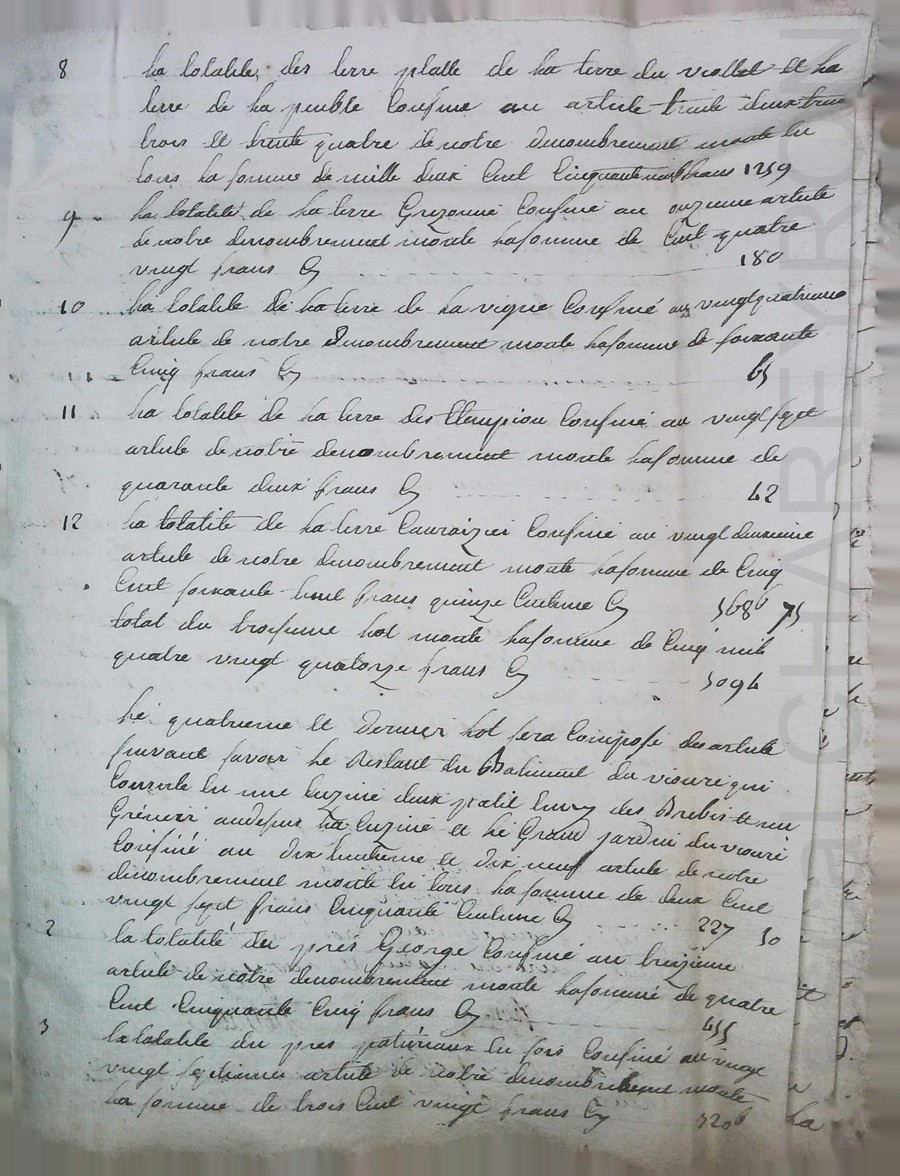 8 ha totalite des terre platte de ha terre du viollet et ha
terre de ha peuble Confine au article trente deux trente
trois et trente quatre de notre denombrement monte en
tous ha somme de mille deux Cent Cinquante neuf frans 1259
9 ha totalité de ha terre Confiné au onzieme article
de notre denombrement monte hasomme de Cent quatre
vingt frans Cy 180
10 ha totalite de ha terre de ha vigne Confiné au vingtquatrieme
article de notre denombrement monte hasomme de soixante
Cinq frans Cy 65
11 ha totalite de ha terre des Confiné au vingt sept
article de notre denombrement monte hasomme de
quarante deux frans Cy 42
12 ha totatite de ha terre Confiné au vingt deuxieme
article de notre denombrement monte hasomme de Cinq
Cent soixante huit frans quinze Centime Cy 568 75
total du troisieme hot monte hasomme de Cinq mil
quatre vingt quatorze frans Cy 5094
hé quatrieme et dernier hot sera Composé des article
suivant savoir he Restant du Batiment du vioure qui
Consiste en une cuzine deux petit des Brebis et un
Grénier audesus ha cuzine et hé Grand jardin du vioure
Confiné au dix huitieme et dix neuf article de notre
denombrement monte en tous ha somme de deux Cent
vingt sept frans Cinquante Centime Cy 227 50
2 la totalité du pres George Confiné au treizieme
article de notre denombrement monte hasomme de quatre
Cent Cinquante Cinq frans Cy 455
3 la totalite du pres Confiné au vingt
vingt septieme article de notre denombrement monte
ha somme de trois Cent vingt frans Cy 320 ha
CHAREYRON